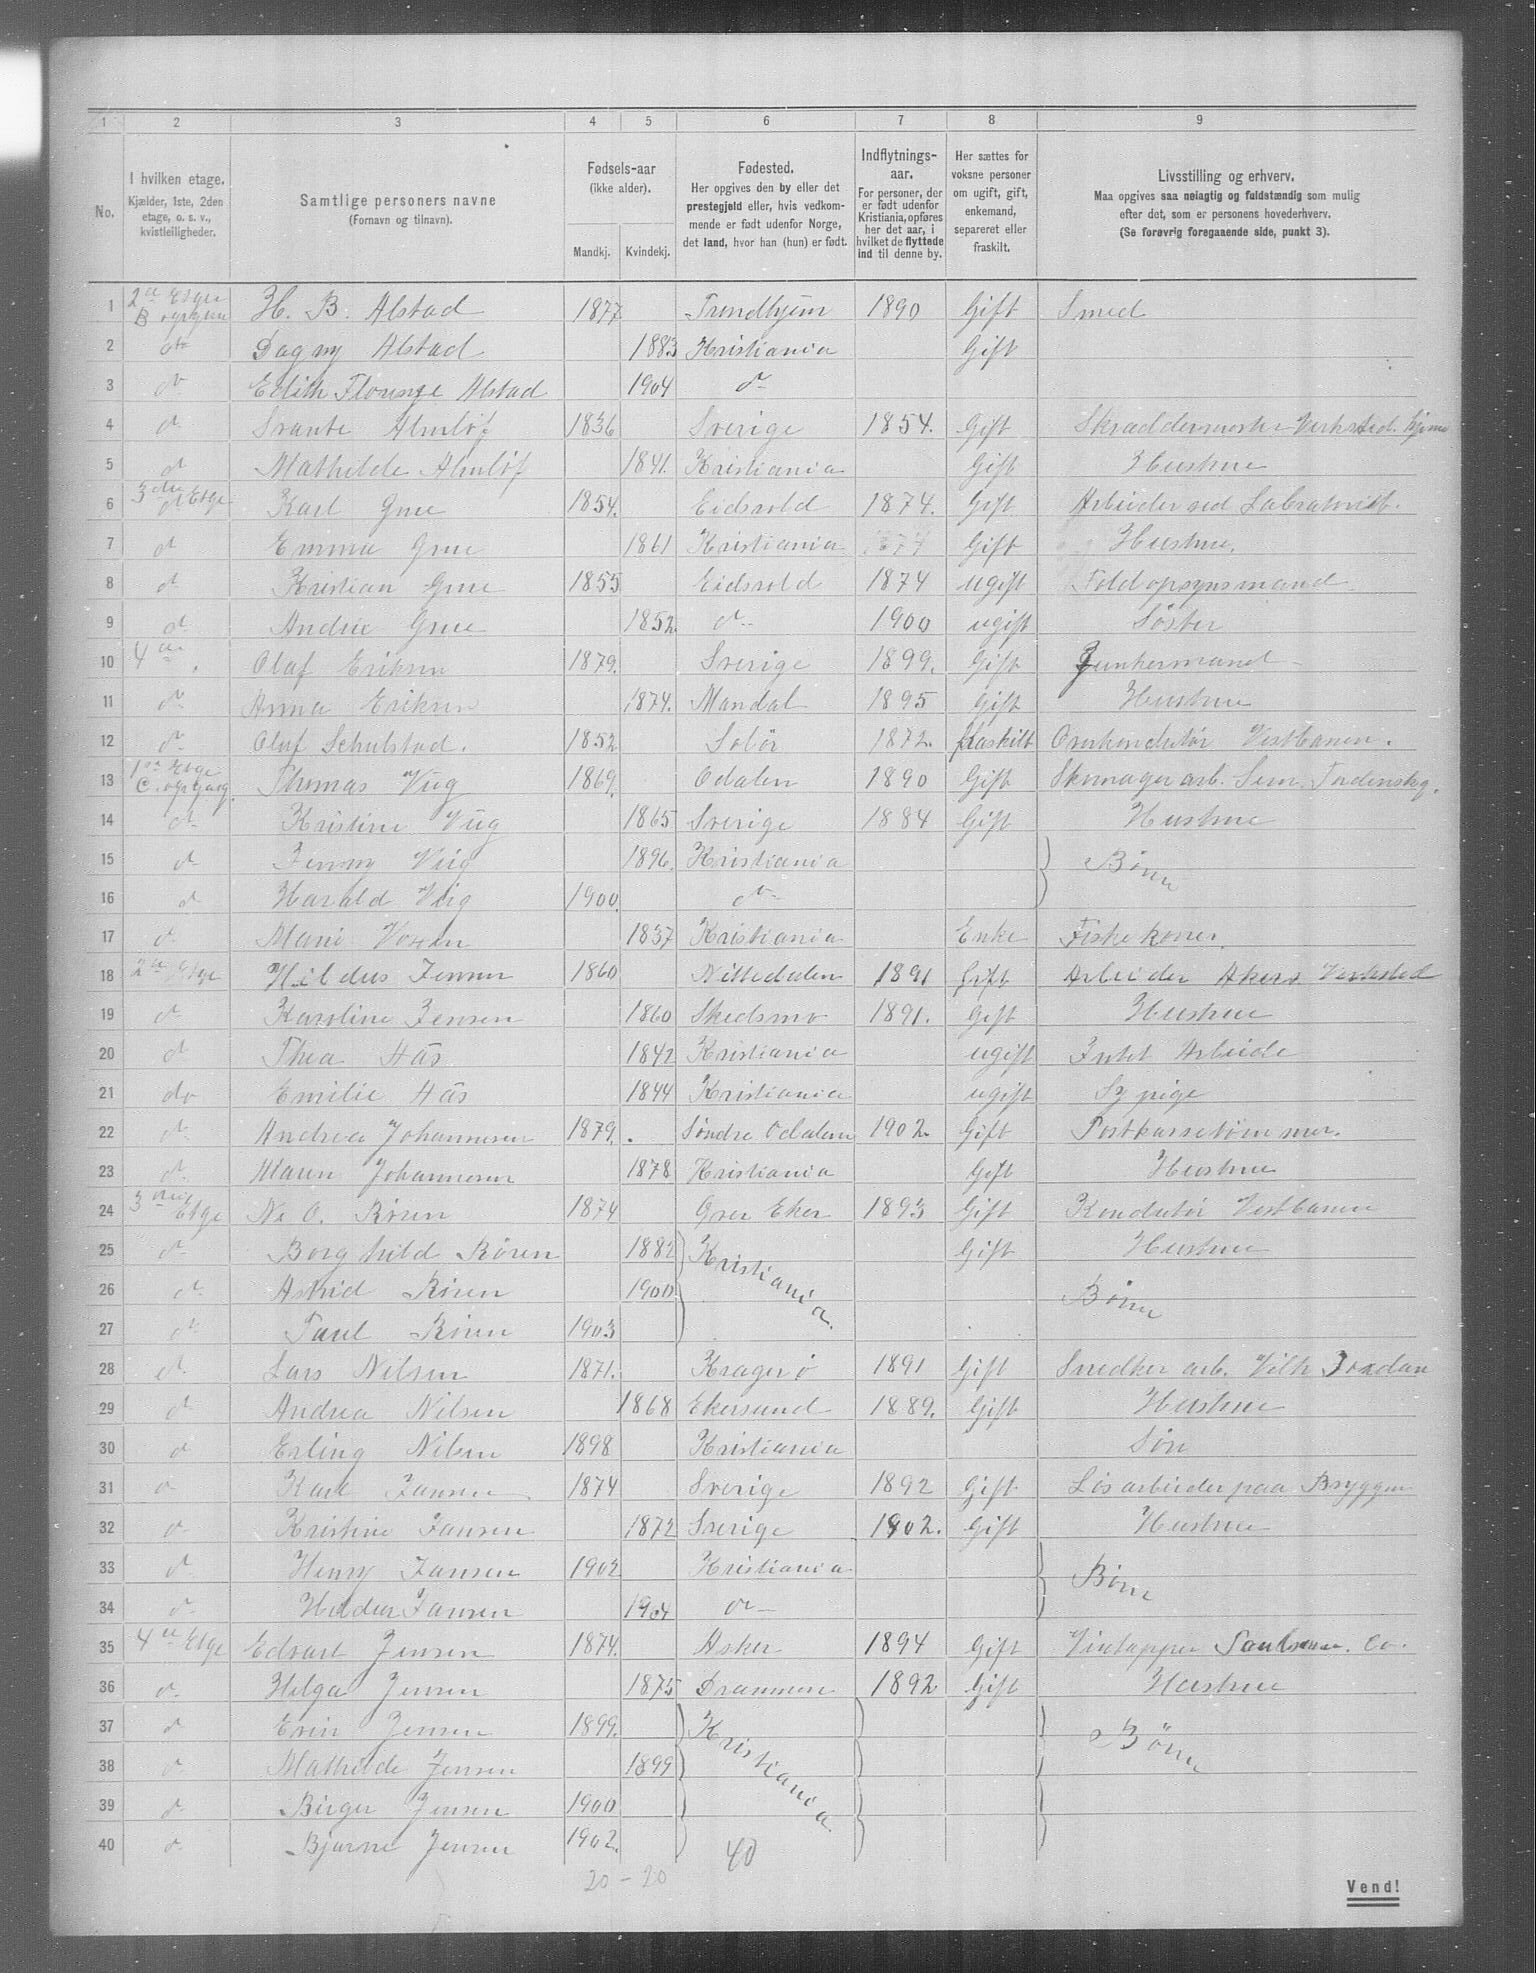 1 2 3 4 5 6 7 8 9
No.
I hvilken etage.
Kjælder, 1ste, 2den
etage, o. s. v.,
kvistleiligheder.
Samtlige personers navne
(Fornavn og tilnavn).
Fødsels-aar
(ikke alder).
Mandkj. Kvindekj.
Fødested.
Her opgives den by eller det
prestegjeld eller, hvis vedkom-
mende er født udenfor Norge,
det land, hvor han (hun) er født.
Indflytnings-
aar.
For personer, der
er født udenfor
Kristiania, opføres
her det aar, i
hvilket de flyttede
ind til denne by.
Her sættes for
voksne personer
om ugift, gift,
enkemand,
separeret eller
fraskilt.
Livsstilling og erhverv.
Maa opgives saa nøiagtig og fuldstændig som mulig
efter det, som er personens hovederhverv.
(Se forøvrig foregaaende side, punkt 3).
1 H. B. Alstad 1877 Trondhjem 1890 Gift Smed
2 do Dagny Alstad 1883 Kristiania Gift
3 do Edith Alstad 1904 do
4 d Svante Almløf 1836 Sverige 1854. Gift Skreddermester Verksted hjeme
5 d Mathilde Almløf 1841. Kristiania Gift Hustrue
6 3die Etge Karl Grue 1854. Eidsvold 1874. Gift Arbeider ved
7 d Emma Grue 1861 Kristiania 1874 Gift Hustrue.
8 d Kristian Grue 1855 Eidsvold 1874 ugift Toldopsynsmand
9 d Grue 1852. do 1900 ugift Søster
10 4de Olaf Eriksen 1879. Sverige 1899. Gift
11 do Anna Eriksen 1874. Mandal 1895 Gift Hustrue
12 do Oluf Schulstad. 1852 Solør 1872. fraskilt Overkonduktør Vestbanen.
13 1ste Etge Thomas Viig 1869. Odalen 1890 Gift Skomagerarb.
14 do Kristine Viig 1865 Sverige 1884 Gift Hustrue
15 d Jenny Viig 1896. Kristiania Børn
16 d Harald Viig 1900. do
17 d 1837 Kristiania Enke Fiskekoner.
18 2den Etge Jensen 1860 Nittedalen 1891 Gift Arbeider Akers Verksted
19 d Karoline Jensen 1860 Skedsmo 1891. Gift Hustrue
20 d Thea Hås 1842 Kristiania ugift Intet Arbeide
21 do Emilie Hås 1844 Kristiania ugift Sypige
22 d Johannesen 1879. Søndre Odalen 1902. Gift Postkassetømmer.
23 d Maren Johannesen 1878 Kristiania Gift Hustrue
24 3die Etge Røren 1874 Øvre Eker 1893 Gift Konduktør Vestbanen
25 d Borghild Røren 1882 Kristiania Gift Hustrue
26 d Astrid Røren 1900 Børn
27 d Paul Røren 1903
28 d. Lars Nilsen 1871. Kragerø 1891 Gift Snedker arb. Vilh. Jordan
29 d Andrea Nilsen 1868 Ekersund 1889. Gift Hustrue
30 d Erling Nilsen 1898 Kristiania Søn
31 d Karl Jansen 1874 Sverige 1892 Gift Løsarbeider paa Bryggen
32 d Kristine Jansen 1872 Sverige 1902. Gift Hustrue
33 d Henry Jansen 1902 Kristiania Børn
34 d Jansen 1904 do
35 4de Etge Edvart Jensen 1874. Asker 1894 Gift Vintapper Co.
36 d Helga Jensen 1875 Drammen 1892 Gift Hustrue
37 d Jensen 1899. Kristiania Børn
38 d Mathilde Jensen 1899
39 d Birger Jensen 1900
40 d Bjarne Jensen 1902.
40
20 - 20
Vend!